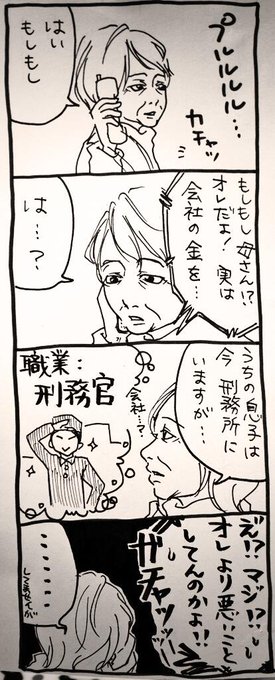 プルルルル…
カチャッ
はい
もしもし
もしもし母さん!?
オレだよ!実は
会社の金を…
は…?
うちの息子は
今 刑務所に
いますが…
会社…?
職業:
刑務官
え!?マジ!?
オレより悪いこと
してんのかよ!!
ガチャッッ
…………